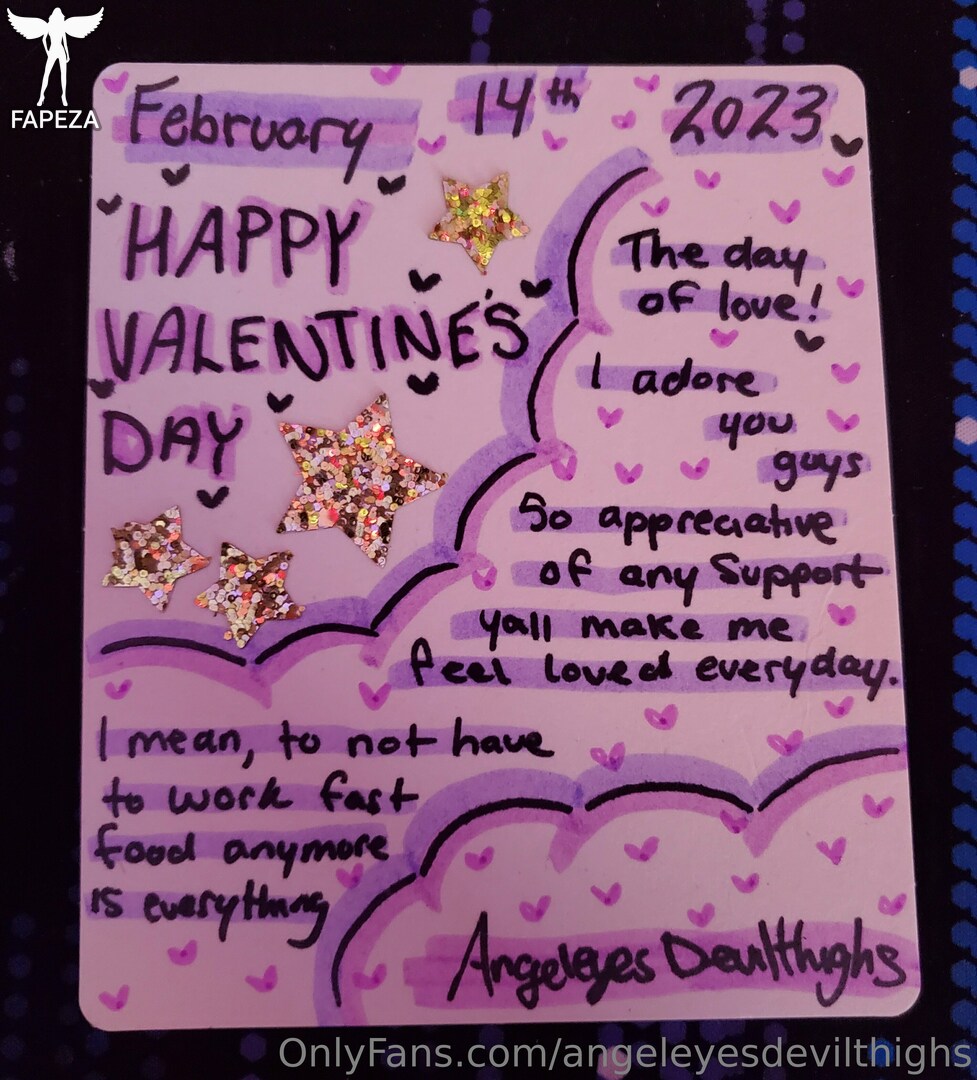 FAPEZA
February 14th 2023
HAPPY
VALENTINE'S
DAY
The day
of love!
I adore
you
guys
So appreciative
of any Support
yall make me
feel loved everyday.
I mean, to not have
to work fast
food anymore
is everything
Angeleyes Devilthighs
OnlyFans.com/angeleyesdevilthighs